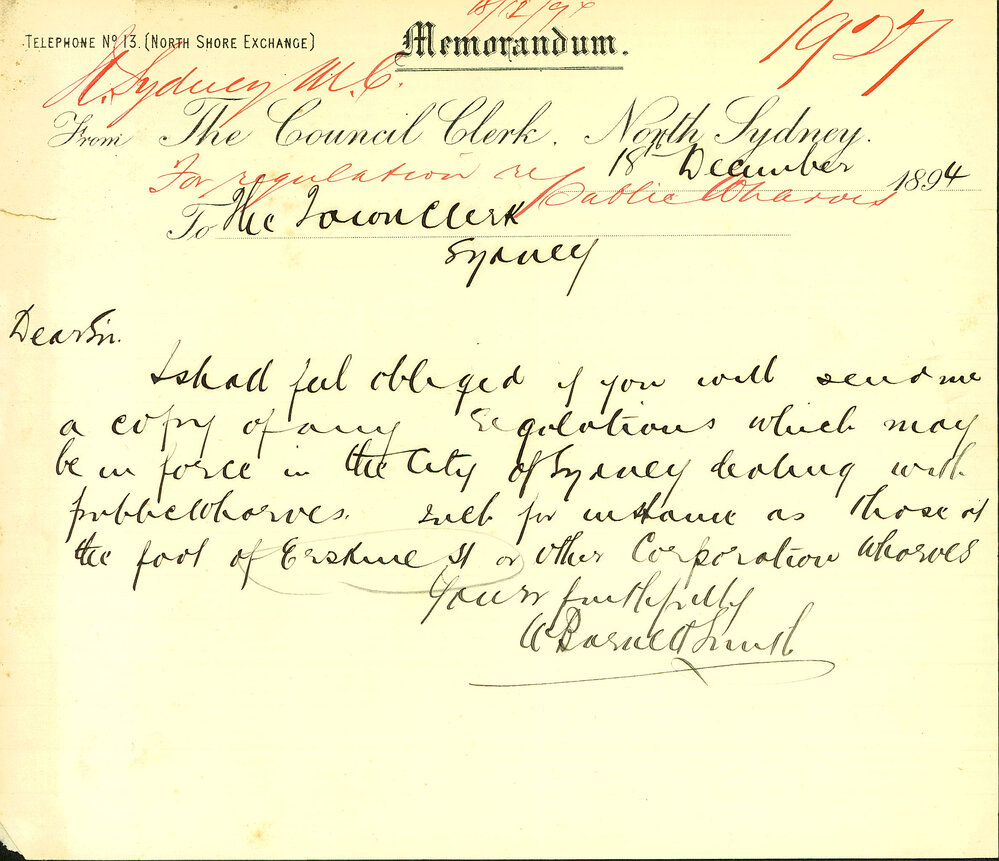 18/12/94
Telephone No 13. (North Shore Exchange)
Memorandum.
1927
N. Sydney M.C.
From The Council Clerk. North Sydney.
For regulation re Public Wharves
18th December 1894
To The Town Clerk
Sydney
Dear Sir.
I shall feel obliged if you will send me
a copy of any Regulations which may
be in force in the City of Sydney dealing with
public wharves. such for instance as those at
the foot of Erskine St or other Corporation Wharves
Yours faithfully
Barnett Smith